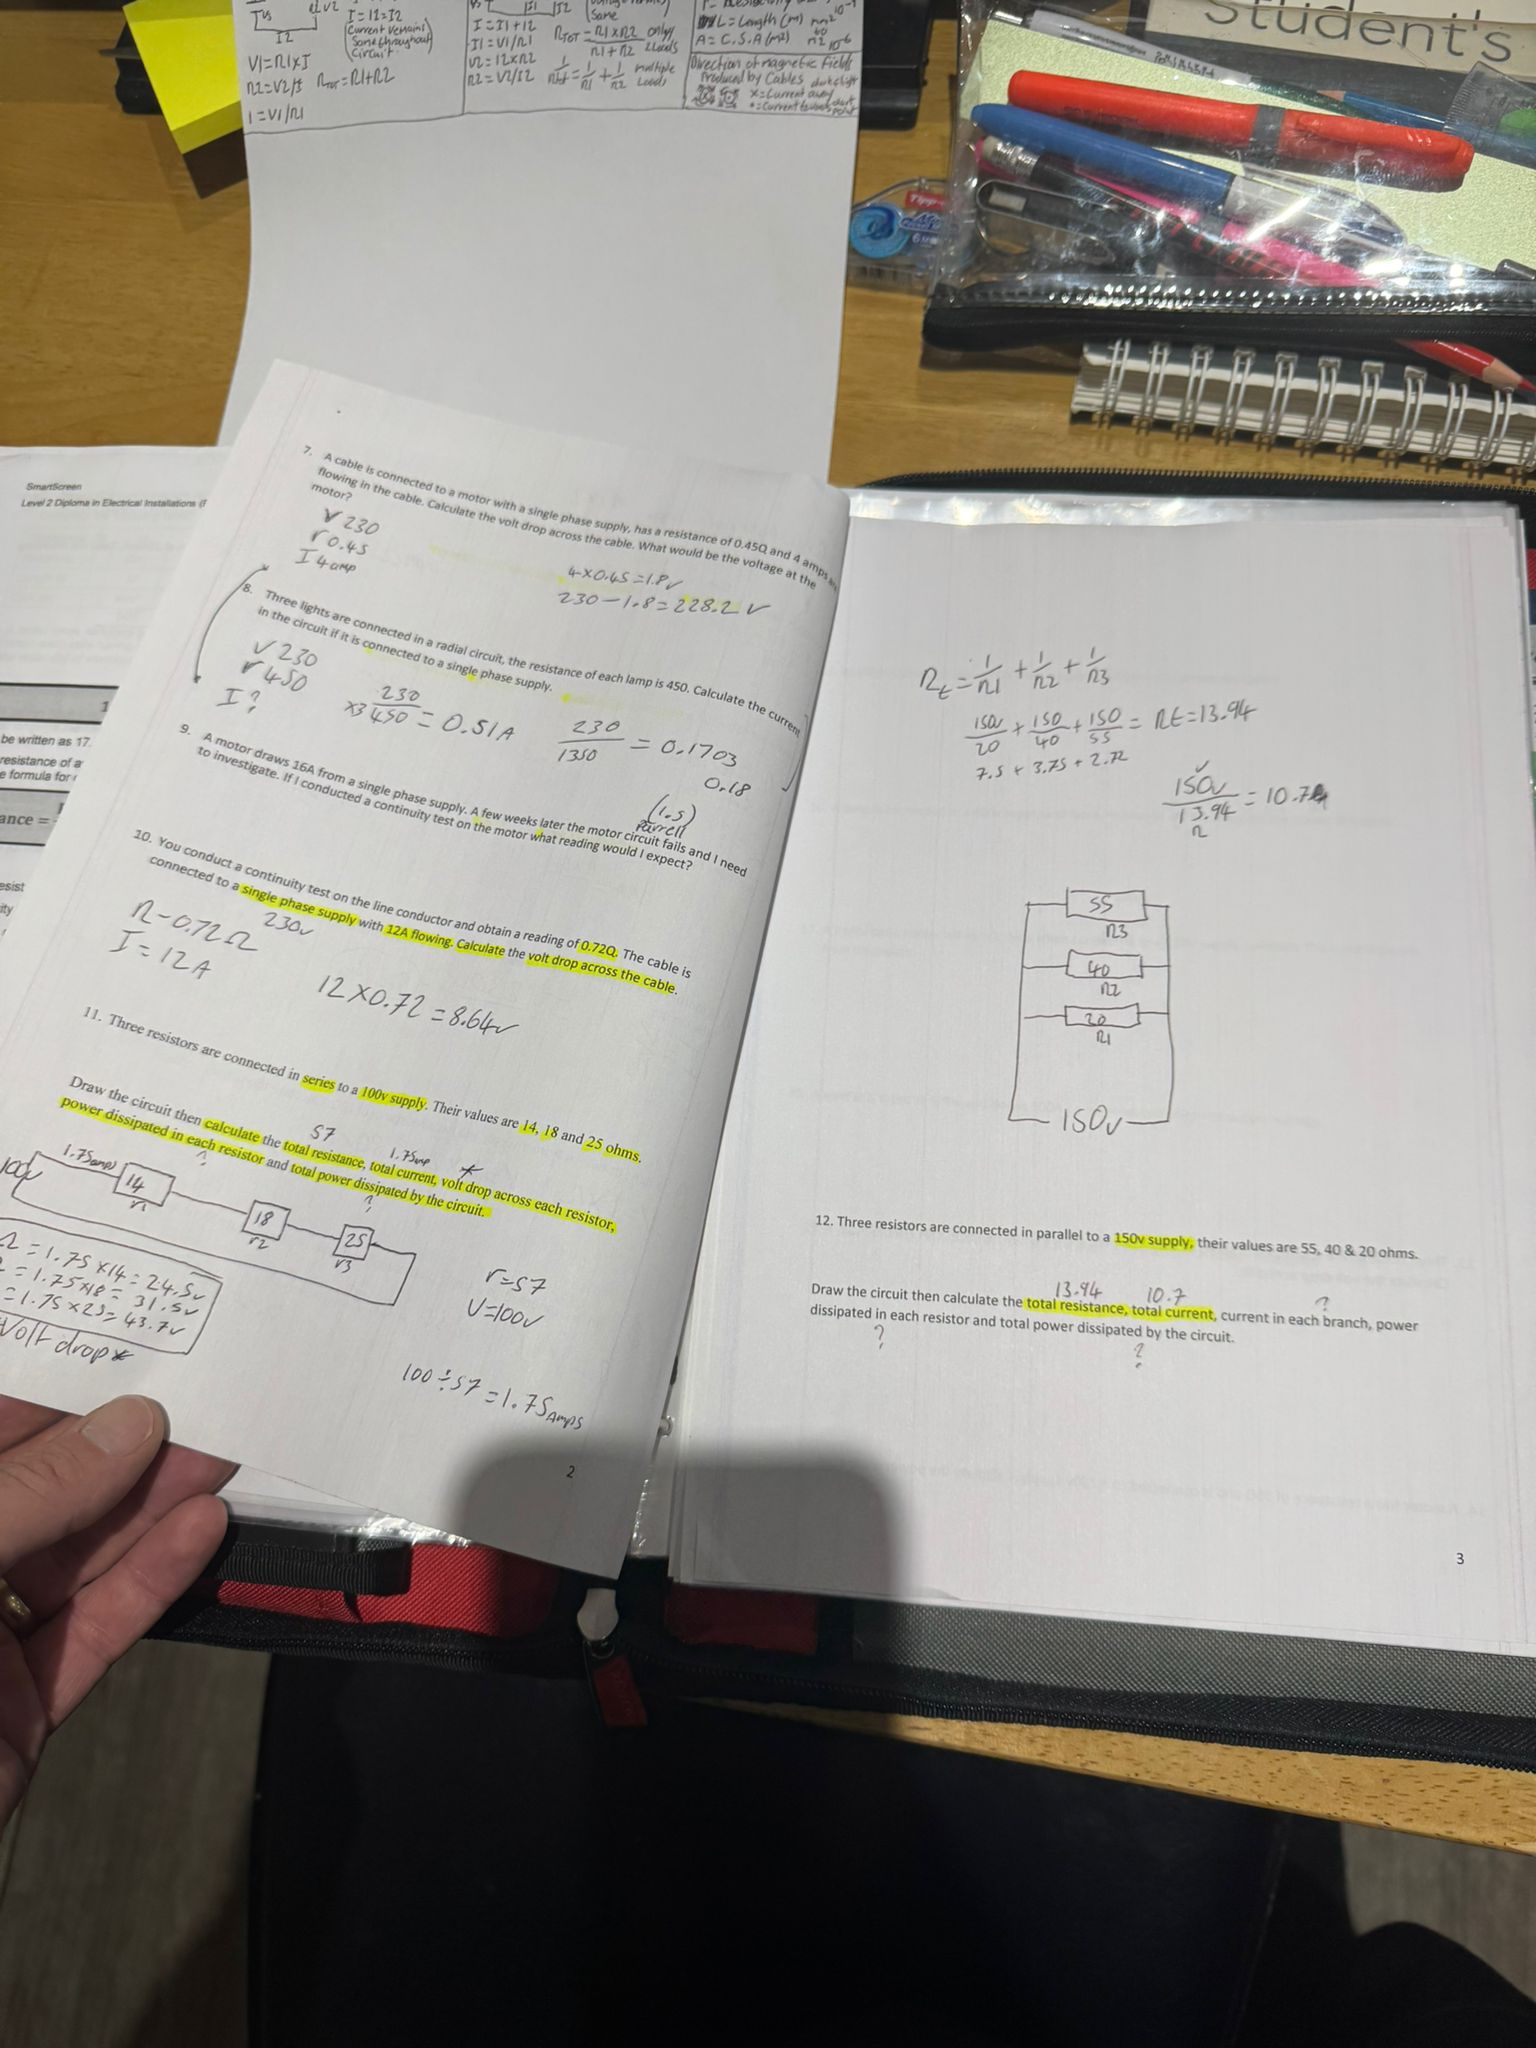 Student's
Vs
V2
I2
I = I2 = I2
(Current remains
Same throughout
Circuit.
V1 = R1 x I
R2 = V2/I
RTOT = R1 + R2
I = V1/R1
I = I1 + I2
I1 = V1/R1
V2 = I2 x R2
R2 = V2/I2
Same
RTOT = R1 x R2 only
R1 + R2 2 Loads
= 1/R1 + 1/R2 multiple
Loads
L = Length (m)
A = C.S.A (m2)
Direction of magnetic fields
Produced by Cables
x = Current away
• = Current towards
Tipp
SmartScreen
Level 2 Diploma in Electrical Installations
1
be written as 17.
resistance of a
e formula for
ance =
7. A cable is connected to a motor with a single phase supply, has a resistance of 0.45Ω and 4 amps
flowing in the cable. Calculate the volt drop across the cable. What would be the voltage at the
motor?
V 230
r 0.45
I 4 amp
4 x 0.45 = 1.8v
230 - 1.8 = 228.2 v
8. Three lights are connected in a radial circuit, the resistance of each lamp is 450. Calculate the current
in the circuit if it is connected to a single phase supply.
V 230
r 450
I ?
x3 230/450 = 0.51A
230/1350 = 0.1703
0.18
(1.5)
Parrell
9. A motor draws 16A from a single phase supply. A few weeks later the motor circuit fails and I need
to investigate. If I conducted a continuity test on the motor what reading would I expect?
10. You conduct a continuity test on the line conductor and obtain a reading of 0.72Ω. The cable is
connected to a single phase supply with 12A flowing. Calculate the volt drop across the cable.
R - 0.72Ω
230v
I = 12A
12 x 0.72 = 8.64v
11. Three resistors are connected in series to a 100v supply. Their values are 14, 18 and 25 ohms.
Draw the circuit then calculate the total resistance, total current, volt drop across each resistor,
power dissipated in each resistor and total power dissipated by the circuit.
57
1.75amp
*
?
?
100v
1.75amp
14
r1
18
r2
25
r3
= 1.75 x 14 = 24.5v
= 1.75 x 18 = 31.5v
= 1.75 x 25 = 43.7v
Volt drop *
r = 57
V = 100v
100 ÷ 57 = 1.75 Amps
2
Rt = 1/R1 + 1/R2 + 1/R3
150v/20 + 150/40 + 150/55 = Rt = 13.94
7.5 + 3.75 + 2.72
v
150v/13.94 = 10.7
R
55
R3
40
R2
20
R1
150v
12. Three resistors are connected in parallel to a 150v supply, their values are 55, 40 & 20 ohms.
13.94
10.7
?
Draw the circuit then calculate the total resistance, total current, current in each branch, power
dissipated in each resistor and total power dissipated by the circuit.
?
?
3